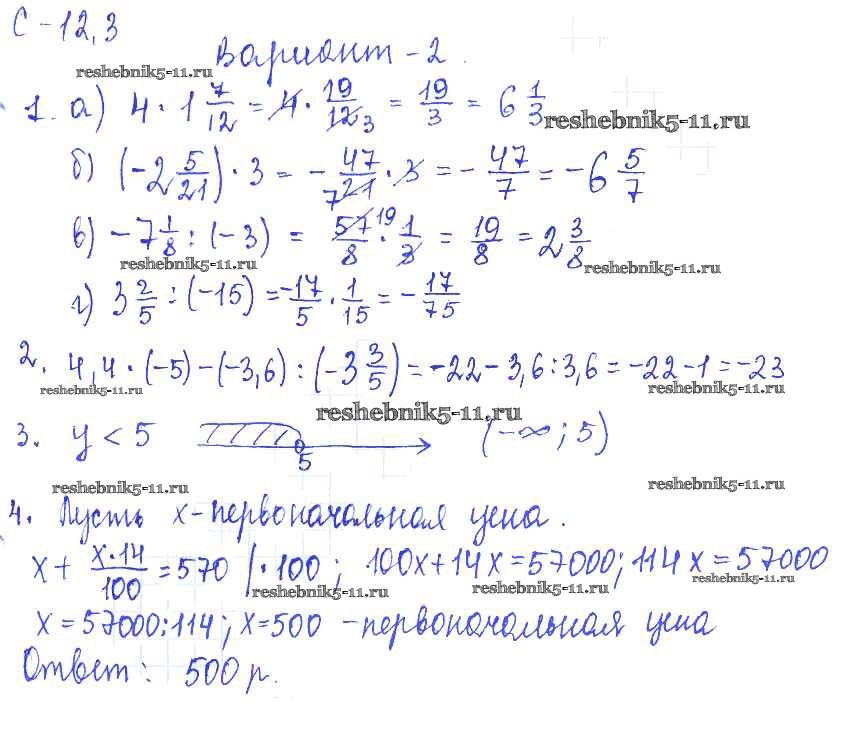 С-12,3
Вариант-2.
reshebnik5-11.ru
1. а) 4 · 1 7/12 = 4 · 19/12 3 = 19/3 = 6 1/3
reshebnik5-11.ru
б) (-2 5/21) · 3 = - 47/7 21 · 3 = - 47/7 = -6 5/7
в) -7 1/8 : (-3) = 57 19/8 · 1/3 = 19/8 = 2 3/8
reshebnik5-11.ru reshebnik5-11.ru
г) 3 2/5 : (-15) = -17/5 · 1/15 = - 17/75
2. 4,4 · (-5) - (-3,6) : (-3 3/5) = -22 - 3,6 : 3,6 = -22 - 1 = -23
reshebnik5-11.ru reshebnik5-11.ru
reshebnik5-11.ru
3. y < 5 5 (-∞; 5)
reshebnik5-11.ru reshebnik5-11.ru
4. Пусть x - первоначальная цена.
x + x·14/100 = 570 | · 100; 100x + 14x = 57000; 114x = 57000
reshebnik5-11.ru reshebnik5-11.ru reshebnik5-11.ru
x = 57000:114; x = 500 - первоначальная цена
Ответ: 500 р.